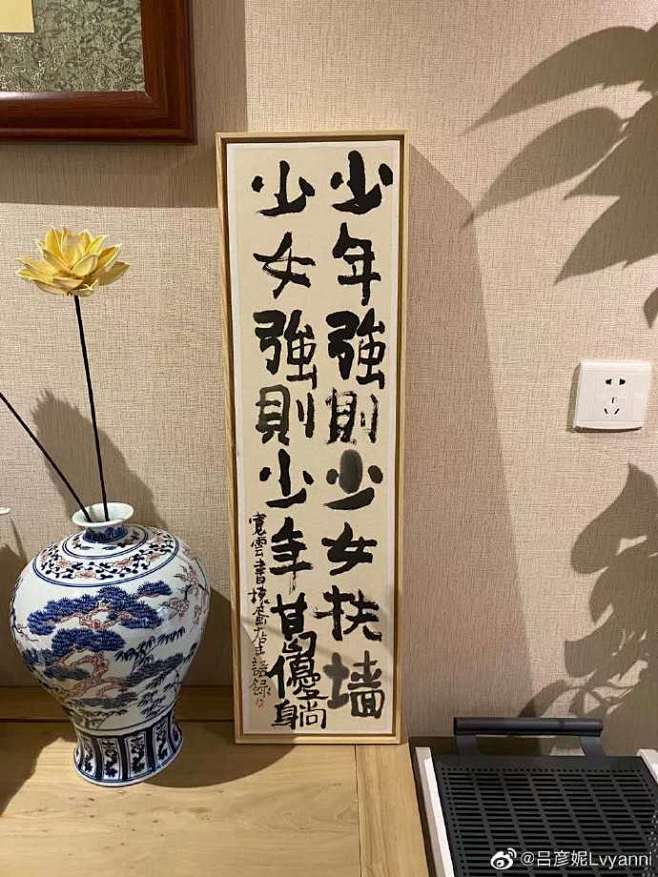 少年強則少女扶墙
少女強則少年葛優躺
寬雲書 主語錄
@吕彦妮Lvyanni